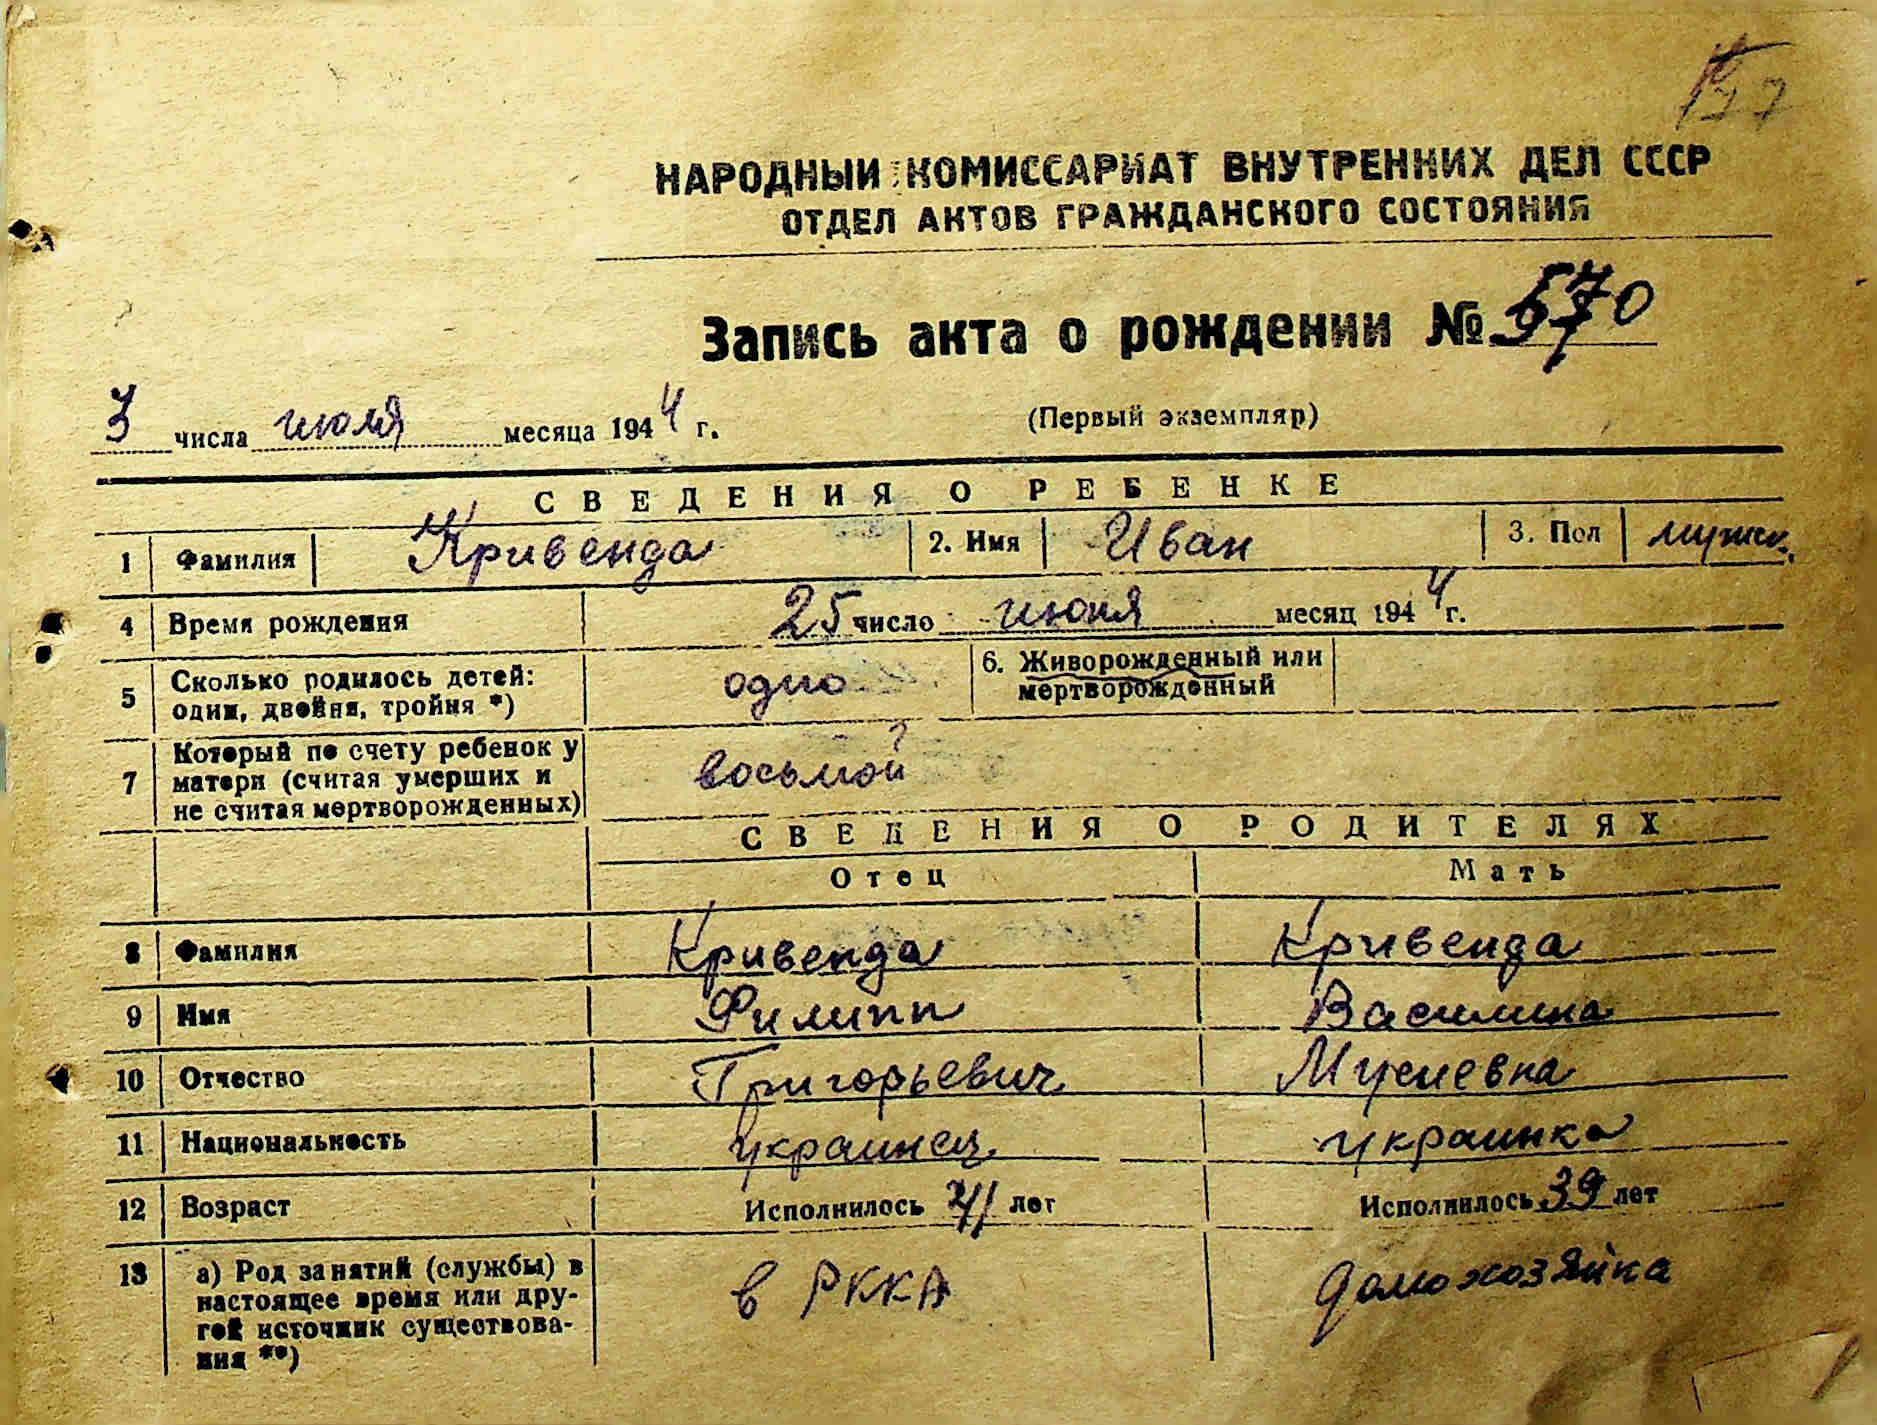 НАРОДНЫЙ КОМИССАРИАТ ВНУТРЕННИХ ДЕЛ СССР
ОТДЕЛ АКТОВ ГРАЖДАНСКОГО СОСТОЯНИЯ
Запись акта о рождении № 570
3 числа июля месяца 1944 г. (Первый экземпляр)
СВЕДЕНИЯ О РЕБЕНКЕ
1 Фамилия Кривенда 2. Имя Иван 3. Пол мужск.
4 Время рождения 25 число июня месяц 1944 г.
5 Сколько родилось детей: один, двойня, тройня *) одно 6. Живорожденный или мертворожденный
7 Который по счету ребенок у матери (считая умерших и не считая мертворожденных) восьмой
СВЕДЕНИЯ О РОДИТЕЛЯХ
Отец Мать
8 Фамилия Кривенда Кривенда
9 Имя Филипп Василина
10 Отчество Григорьевич Мусиевна
11 Национальность украинец украинка
12 Возраст Исполнилось 41 лет Исполнилось 39 лет
13 а) Род занятий (службы) в настоящее время или другой источник существования **) в РККА домохозяйка